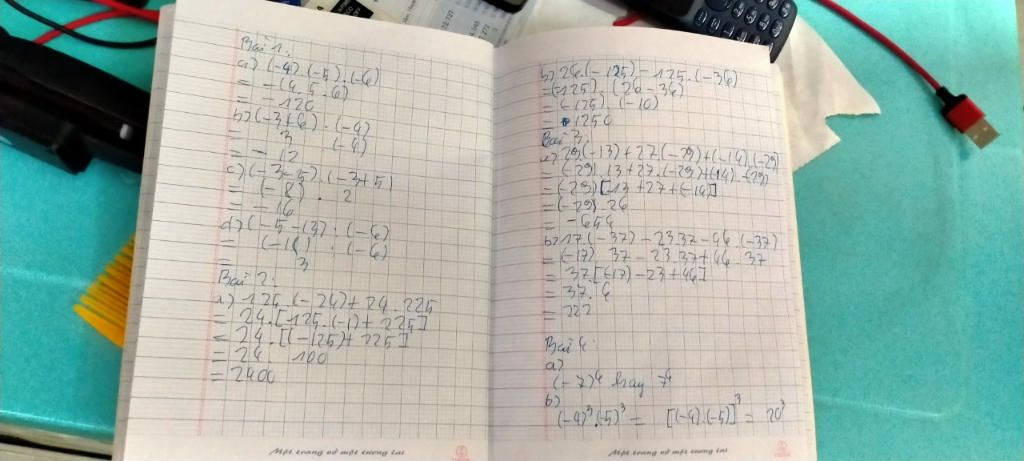 Bài 1:
a) (-4).(-5).(-6)
= -(4.5.6)
= -120
b) (-3+6) . (-4)
= 3 (-4)
= -12
c) (-3-5).(-3+5)
= (-8) . 2
= -16
d) (-5-13) : (-6)
= (-18) : (-6)
= 3
Bài 2:
a) 125.(-24)+24.225
= 24.[125.(-1)+225]
= 24.[(-125)+225]
= 24. 100
= 2400
b) 26.(-125)-125.(-36)
=(-125).(26-36)
=(-125).(-10)
= 1250
Bài 3:
a) 29(-13)+27.(-29)+(-14).(-29)
= (-29).13+27.(-29)+(-14).(-29)
=(-29)[13+27+(-14)]
=(-29).26
-654
b) 17.(-37)-23.37-46.(-37)
= (-17).37-23.37+46.37
= 37.[(-17)-23+46]
= 37.6
= 222
Bài 4:
a)
(-7)⁴ hay 7⁴
b)
(-4)³.(-5)³ = [(-4).(-5)]³ = 20³
Một trang vở một tương lai
Một trang vở một tương lai